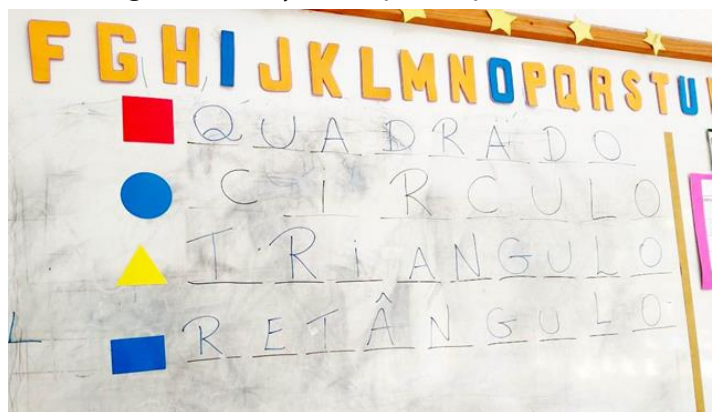 FGHIJKLMNOPQRSTU
QUADRADO
CIRCULO
TRIANGULO
RETÂNGULO